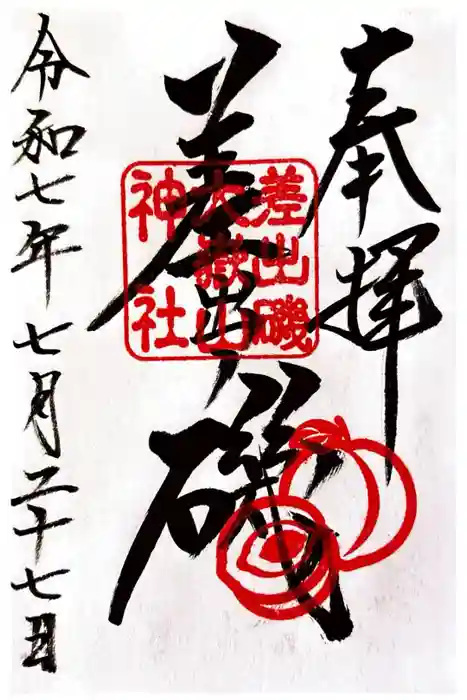 奉拝
差出ノ磯
差出磯
大嶽山
神社
令和七年七月二十七日